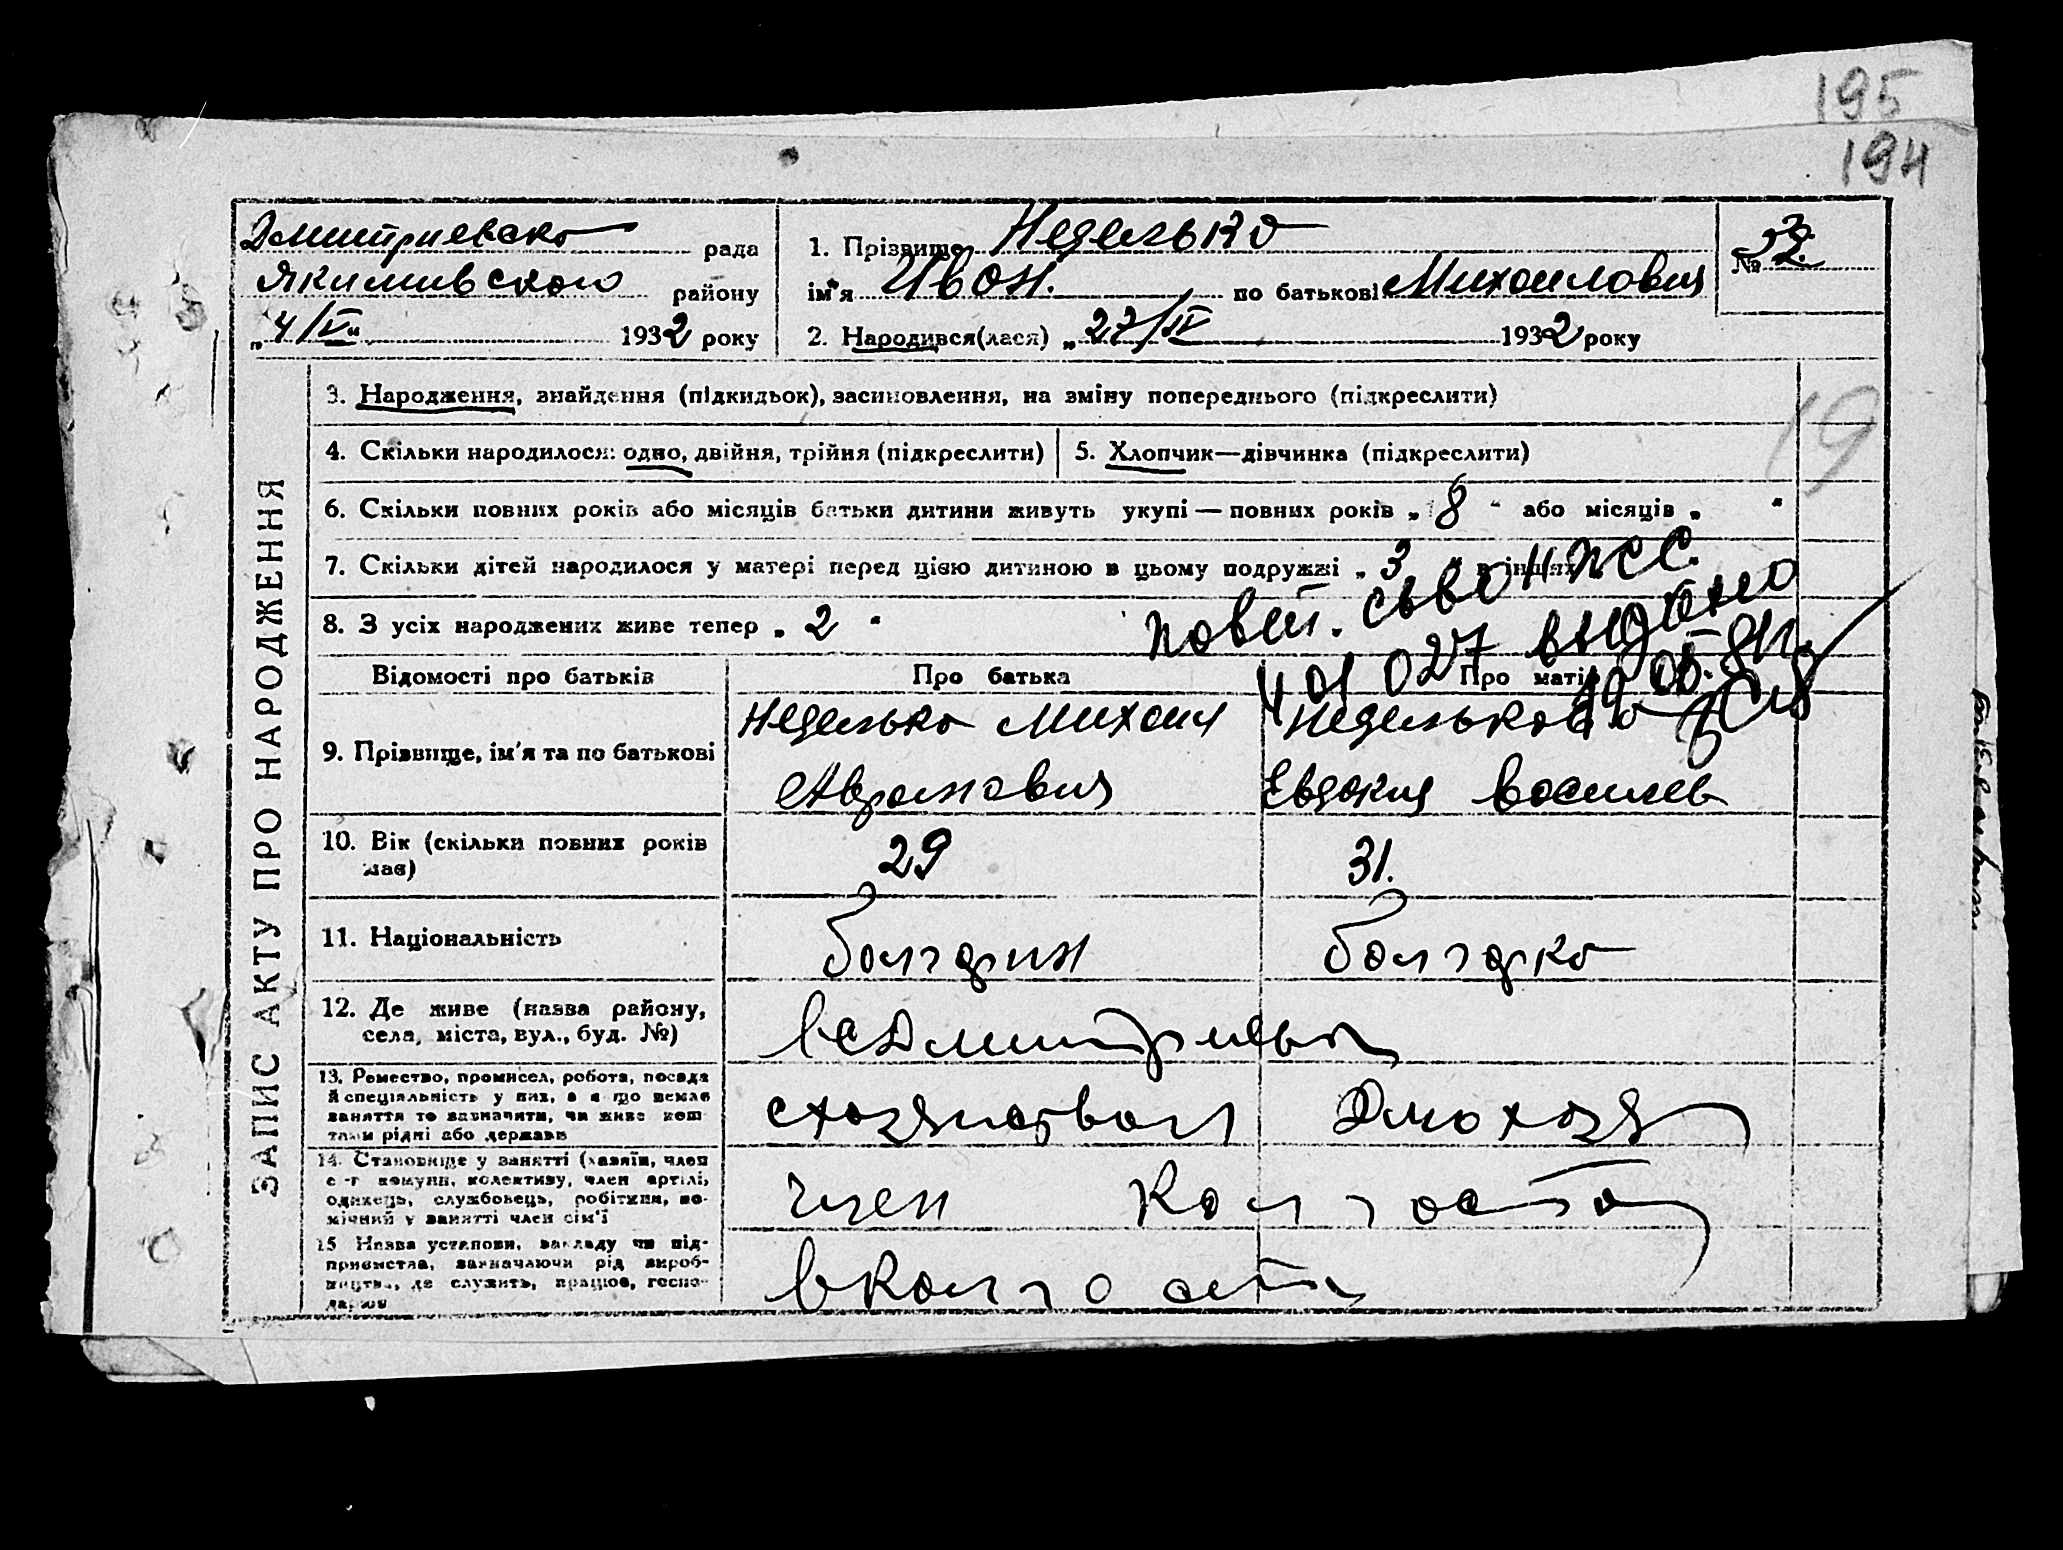 195
194
Дмитриевско рада
Якимивского району
„4/V“ 1932 року
1. Прізвище Неделько
ім'я Иван. по батькові Михаилович
2. Народився(лася) „27/IV 1932 року
№ 32.
ЗАПИС АКТУ ПРО НАРОДЖЕННЯ
3. Народження, знайдення (підкидьок), засиновлення, на зміну попереднього (підкреслити)
19
4. Скільки народилося: одно, двійня, трійня (підкреслити)
5. Хлопчик—дівчинка (підкреслити)
6. Скільки повних років або місяців батьки дитини живуть укупі — повних років „8“ або місяців „ “
7. Скільки дітей народилося у матері перед цією дитиною в цьому подружжі „3“ в інших
8. З усіх народжених живе тепер „2“
повт.
401 027 видано
Відомості про батьків
Про батька
Про матір
9. Прізвище, ім'я та по батькові
Неделько Михаил
Аврамович
Неделькова
Евдокия Василев
10. Вік (скільки повних років має)
29
31.
11. Національність
болгарин
болгарка
12. Де живе (назва району,
села, міста, вул., буд. №)
13. Ремество, промисел, робота, посада
й спеціяльність у них, а якщо немає
заняття то зазначити, чи живе кош-
тами рідні або держави
14. Становище у занятті (хазяїн, член
с.-г комуни, колективу, член артілі,
одинець, службовець, робітник, по-
мічний у занятті член сім'ї
член
15 Назва установи, закладу чи під-
приємства, зазначаючи рід вироб-
ництва, де служить, працює, госпо-
дарює